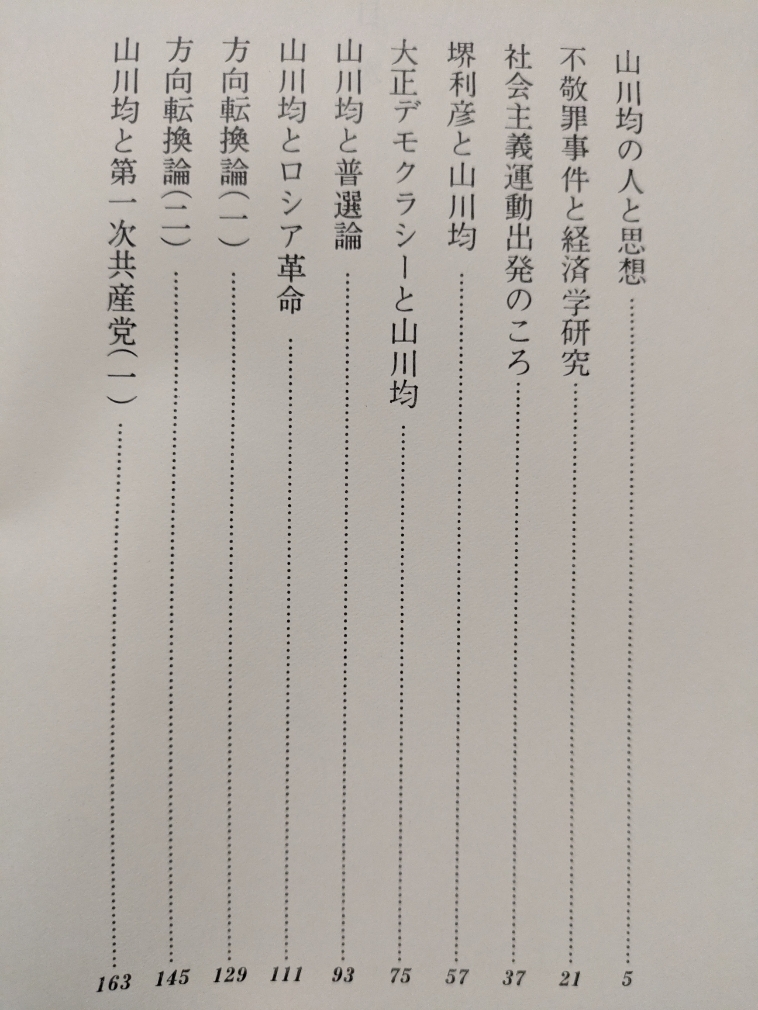 山川均の人と思想……5
不敬罪事件と経済学研究……21
社会主義運動出発のころ……37
堺利彦と山川均……57
大正デモクラシーと山川均……75
山川均と普選論……93
山川均とロシア革命……111
方向転換論(一)……129
方向転換論(二)……145
山川均と第一次共産党(一)……163